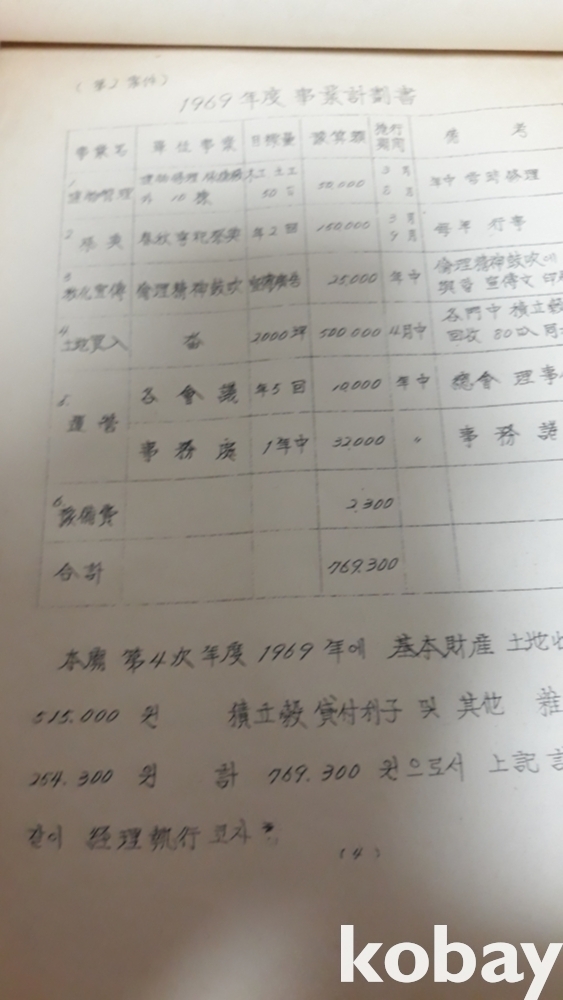 (第2案件)
1969年度 事業計劃書
事業名 單位事業 目標量 豫算額 施行期間 備 考
1 建物管理 外 10棟 木工 土工 50 50,000 3月 年中 常時修理
2 祭典 春秋享祀祭典 年2回 150,000 3月 9月 每年 行事
3 敎化宣傳 倫理精神鼓吹 25,000 年中 倫理精神鼓吹에 宣傳文 印
4 土地買入 畓 2000坪 500,000 4月中 各門中 積立穀 回收 80
5 運營 各會議 年5回 10,000 年中 總會 理事
事務 1年中 32,000 〃 事務
6 設備費 2,300
合計 769,300
第4次年度 1969年에 基本財産 土地收
515.000 원 積立穀 貸付利子 및 其他 雜
254.300 원 計 769.300 원으로서 上記 計
같이 経理執行 코자 함
(4)
kobay